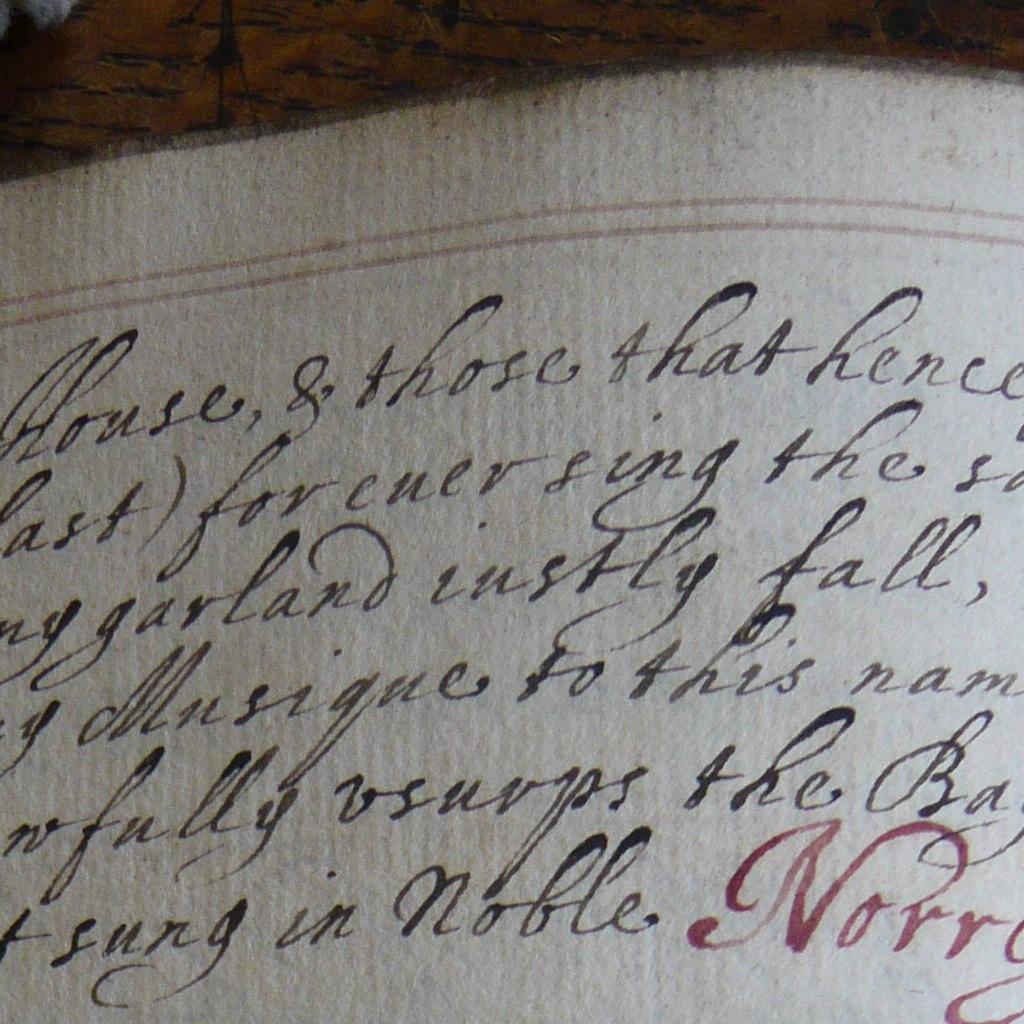 House, & those that hence
last) for euer sing the sa
ny garland iustly fall,
y Musique to this nam
wfully vsurps the Ba
t sung in Noble Norr